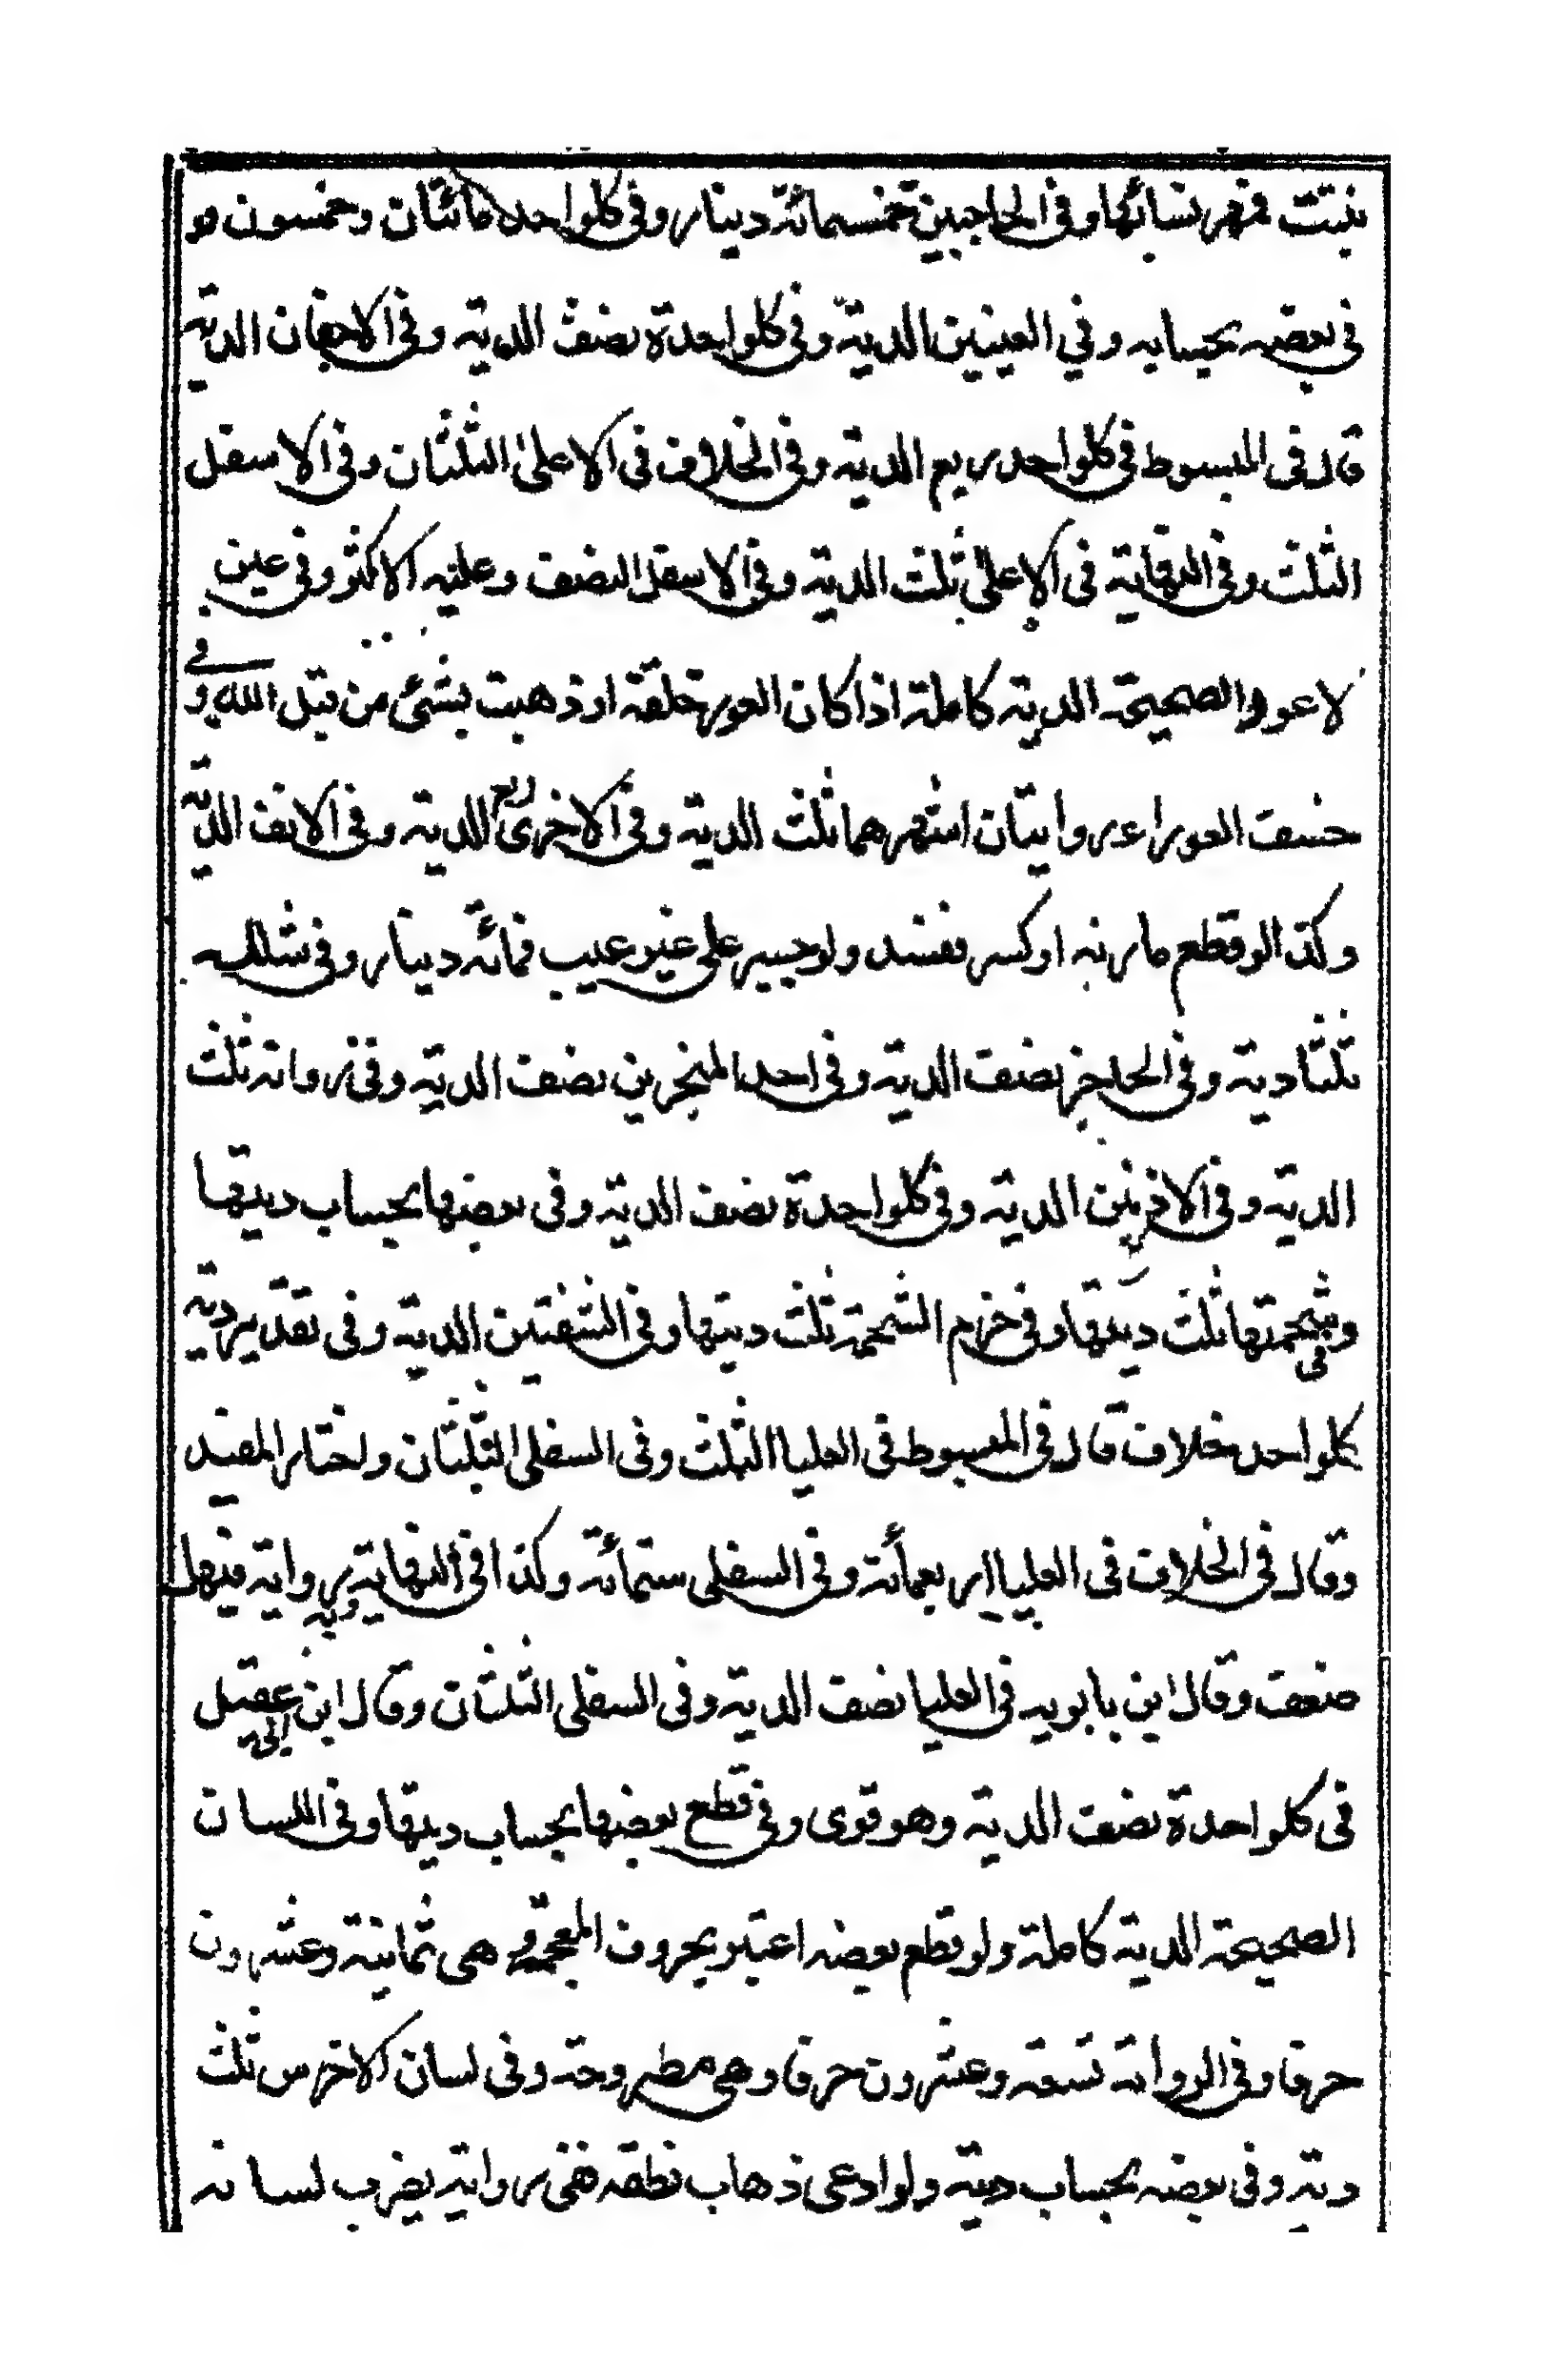 نبتت فمهر نسائها وفي الحاجبين خمسمائة دينار وفي كل واحد مائتان وخمسون و
في بعضه بحسابه وفي العينين الدية وفي كل واحدة نصف الدية وفي الاجفان الدية
قال في المبسوط في كل واحد ربع الدية وفي الخلاف في الاعلى الثلثان وفي الاسفل
الثلث وفي النهاية في الاعلى ثلث الدية وفي الاسفل النصف وعليه الاكثر وفي عين
الاعور الصحيحة الدية كاملة اذا كان العور خلقة او ذهبت بشئ من قبل الله وفي
خسف العوراء روايتان اشهرهما ثلث الدية وفي الاخرى ربع الدية وفي الانف الدية
وكذا لو قطع مارنه او كسر ففسد ولو جبر على غير عيب فمائة دينار وفي شلله
ثلثا دية وفي الحاجز نصف الدية وفي احد المنخرين نصف الدية وفي رواية ثلث
الدية وفي الاذنين الدية وفي كل واحدة نصف الدية وفي بعضها بحساب ديتها
وفي شحمتها ثلث ديتها وفي خرم الشحمة ثلث ديتها وفي الشفتين الدية وفي تقدير دية
كل واحد خلاف قال في المبسوط في العليا الثلث وفي السفلى الثلثان واختار المفيد
وقال في الخلاف في العليا اربعمائة وفي السفلى ستمائة وكذا في النهاية وبه رواية فيها
ضعف وقال ابن بابويه في العليا نصف الدية وفي السفلى الثلثان وقال ابن ابي عقيل
في كل واحدة نصف الدية وهو قوى وفي قطع بعضها بحساب ديتها وفي اللسان
الصحيحة الدية كاملة ولو قطع بعضه اعتبر بحروف المعجم وهي ثمانية وعشرون
حرفا وفي الرواية تسعة وعشرون حرفا وهي مطروحة وفي لسان الاخرس ثلث
دية وفي بعضه بحساب ديته ولو ادعى ذهاب نطقه ففي رواية يضرب لسانه